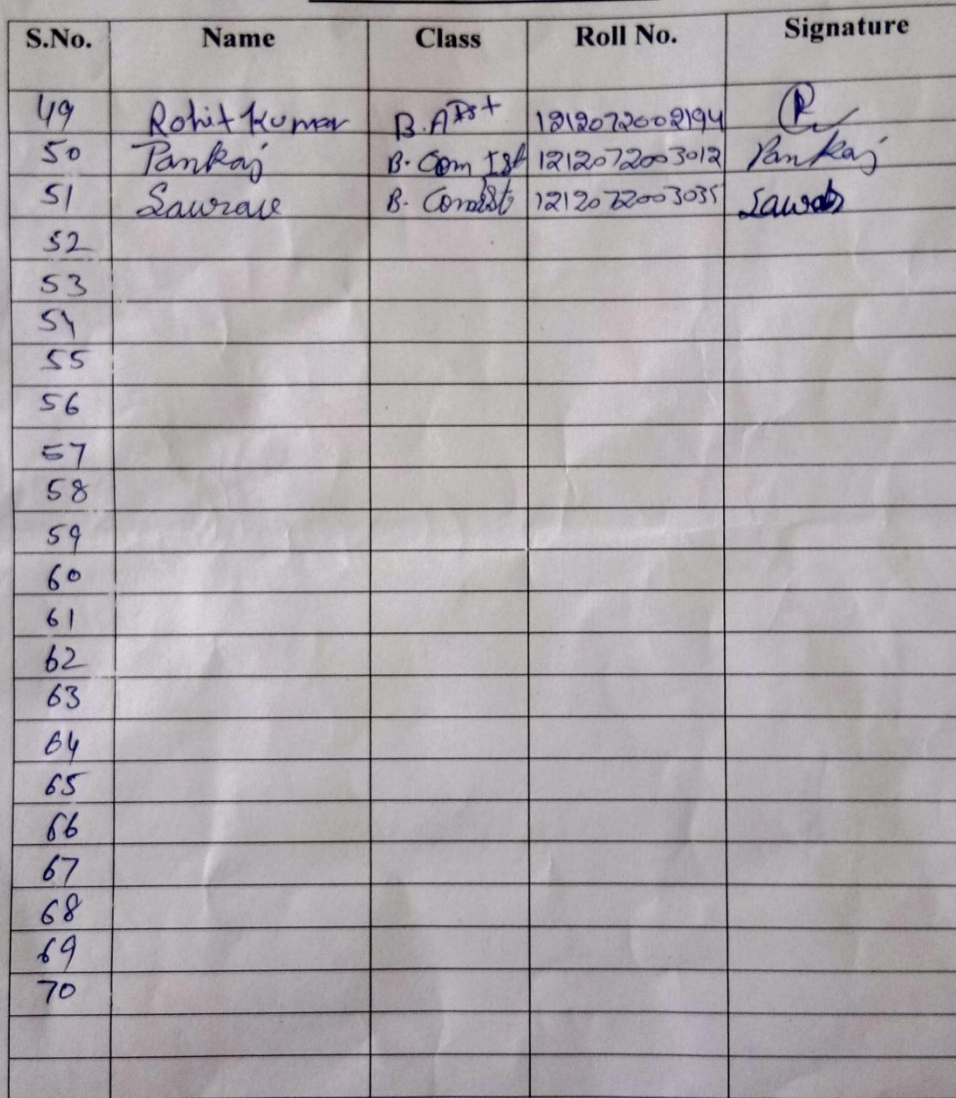 S.No. Name Class Roll No. Signature
49 Rohit Kumar B.A Ist 1212072002194 R
50 Pankaj B. Com Ist 1212072003012 Pankaj
51 Saurave B. Com Ist 1212072003035
52
53
54
55
56
57
58
59
60
61
62
63
64
65
66
67
68
69
70